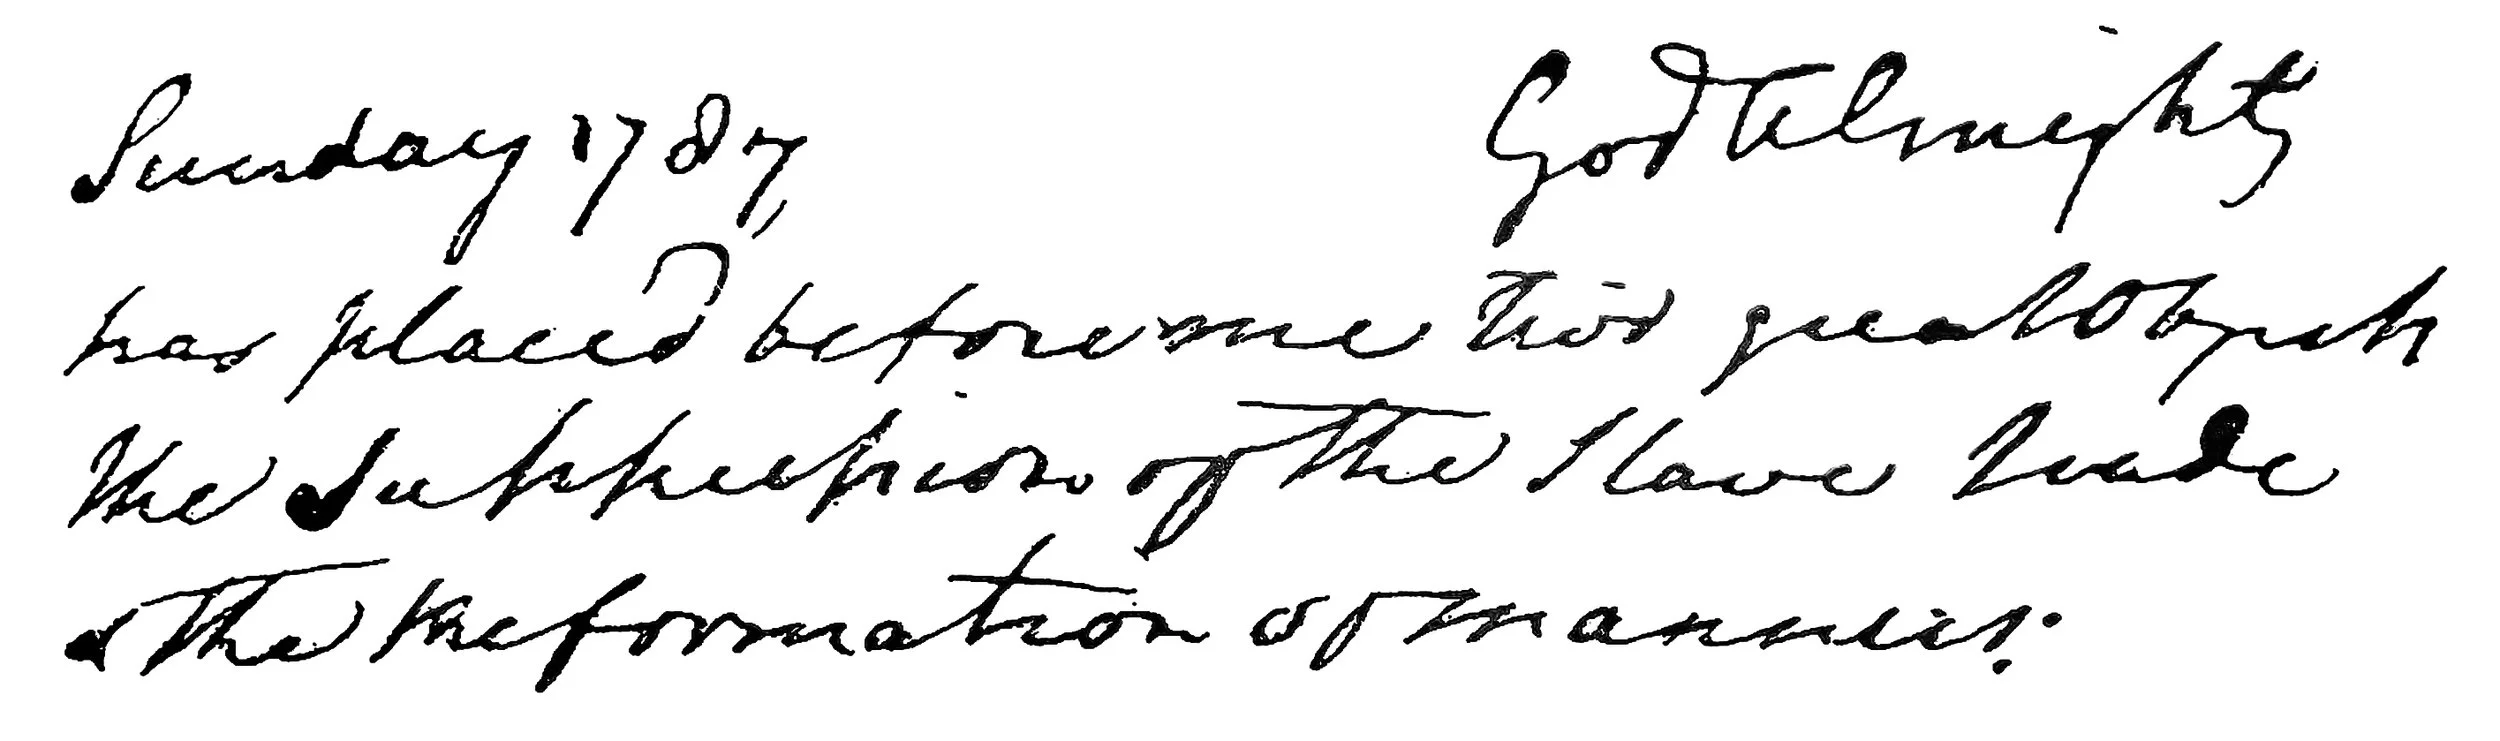 Sunday 1787, God Almighty
has placed before me two great Objects
the Suppression of the Slave Trade
& the Reformation of manners.